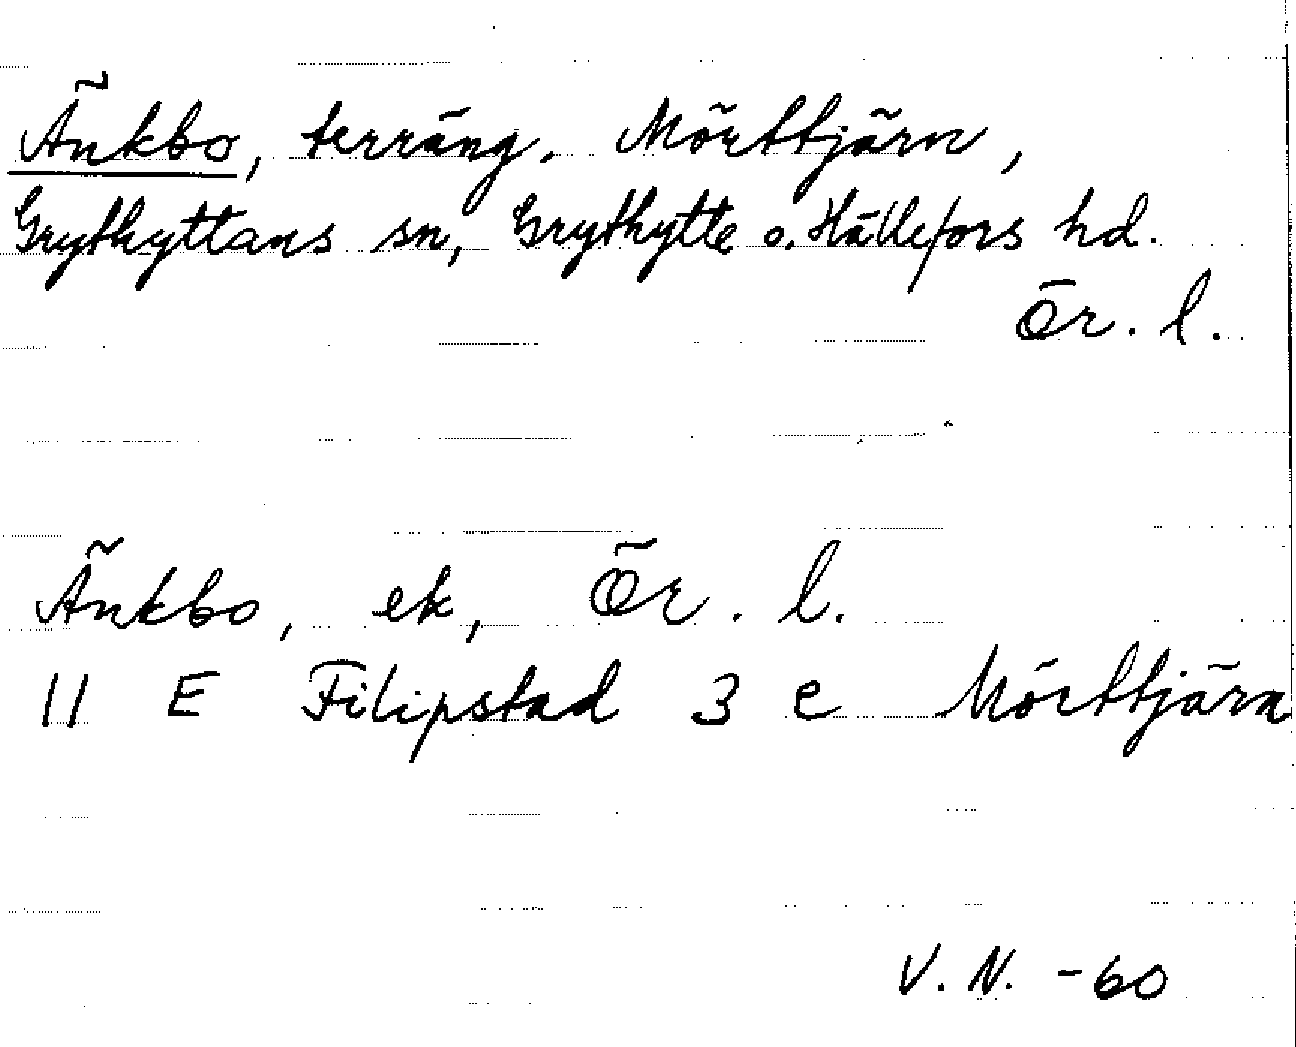 Änkbo, terräng. Mörttjärn,
Grythyttans sn, Grythytte o. Hällefors hd.
Ör. l.
Änkbo, ek, Ör. l.
11 E Filipstad 3 e Mörttjärn
V. N. -60